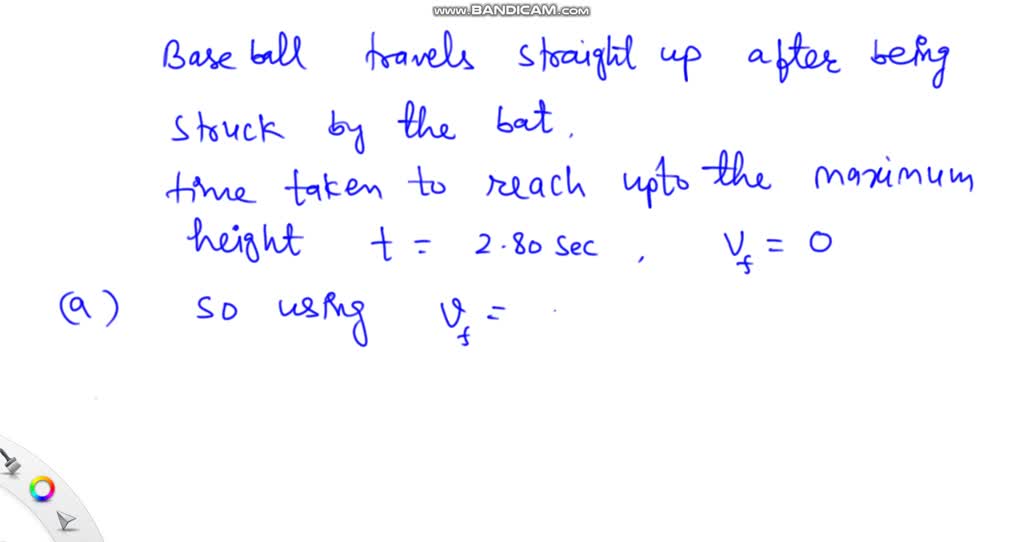 www.BANDICAM.com
Baseball travels straight up after being
struck by the bat.
time taken to reach upto the maximum
height t = 2.80 sec , Vf = 0
(a) so using vf =